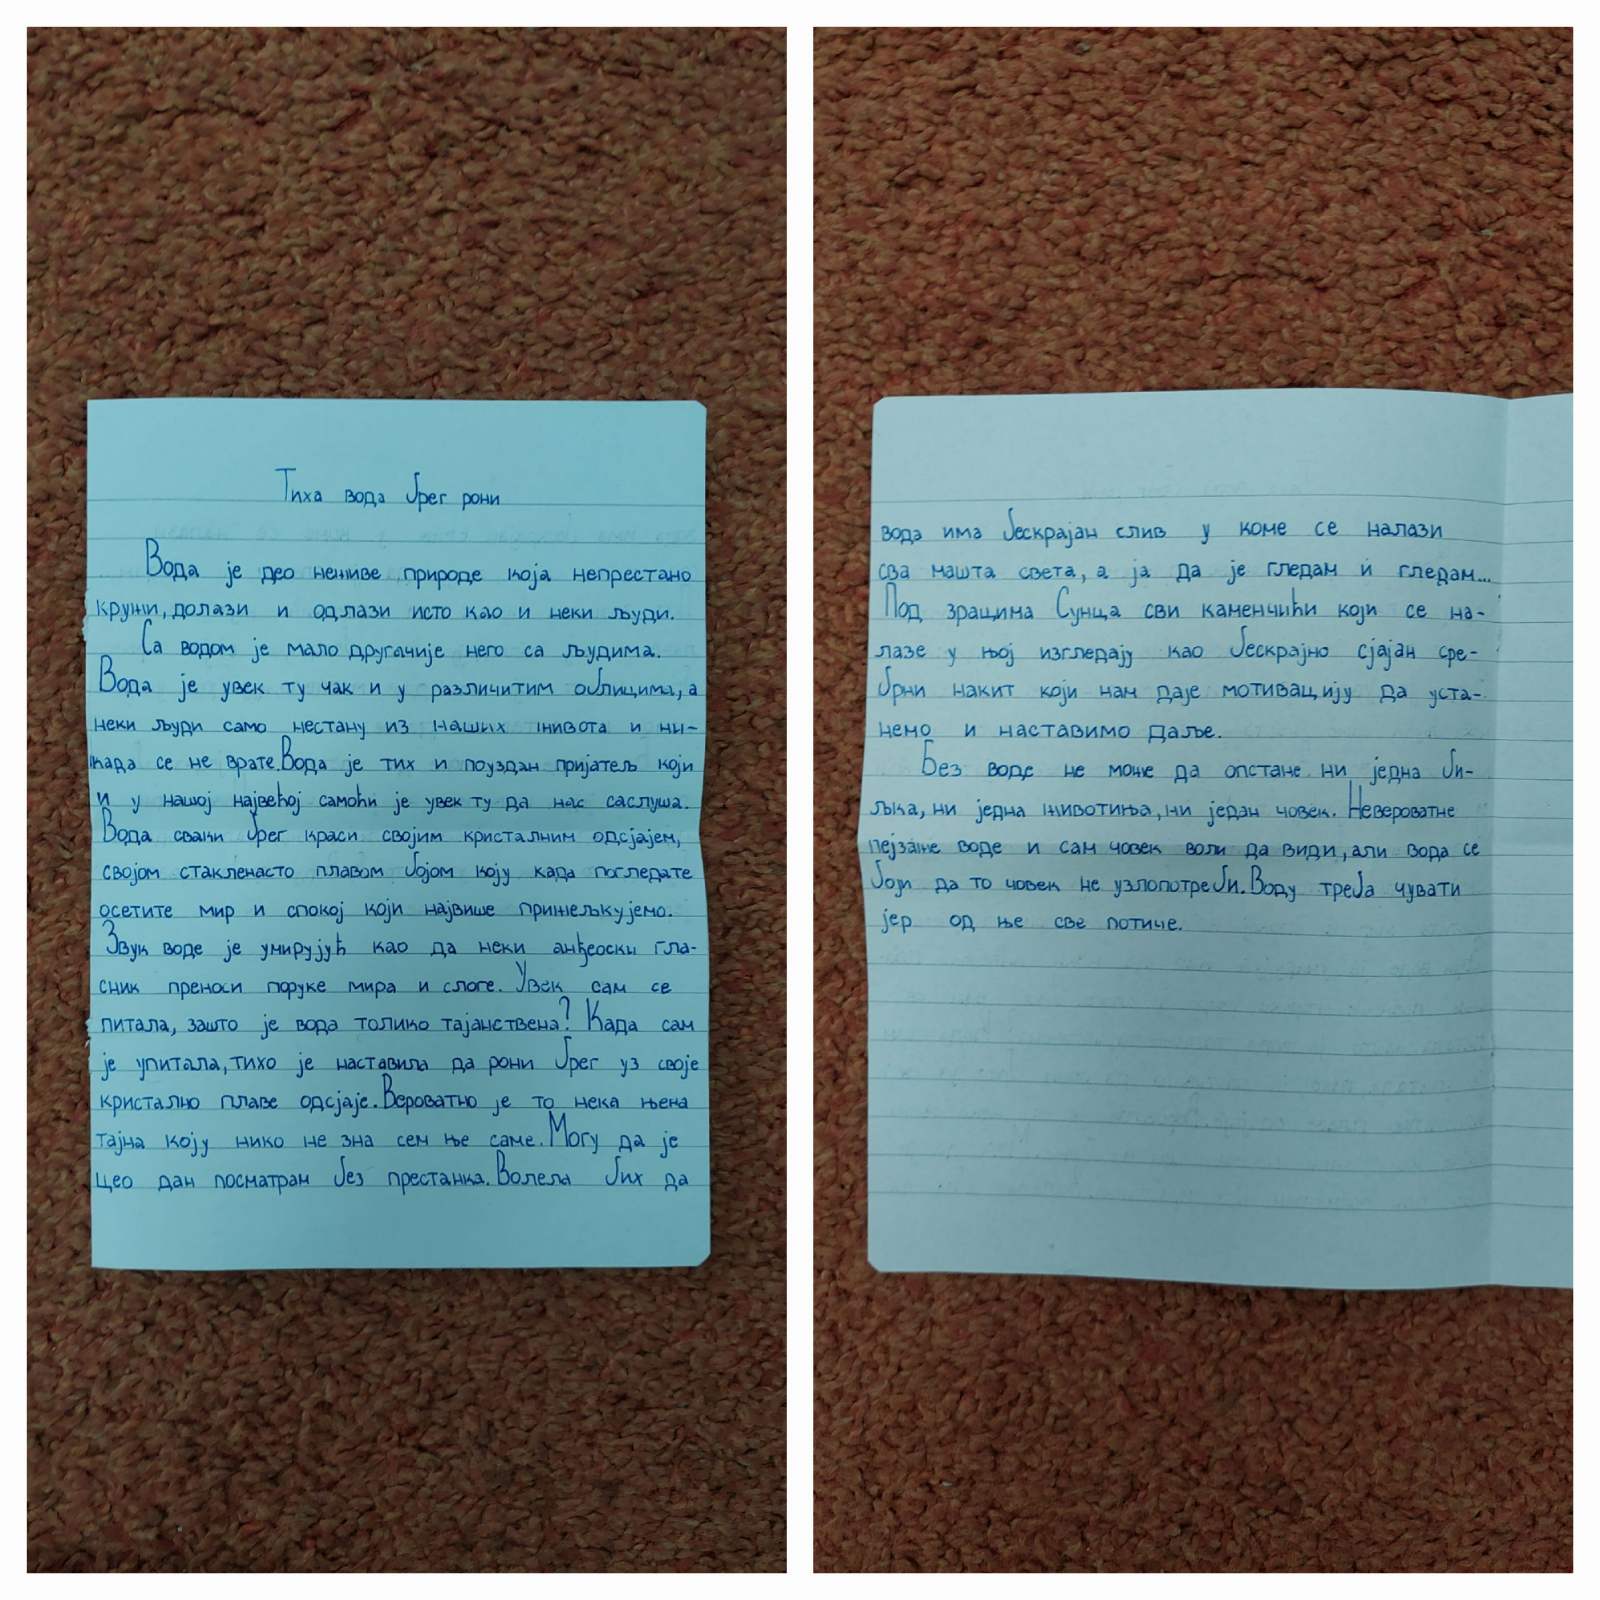 Тиха вода брег рони
Вода је део неживе природе која непрестано
кружи, долази и одлази исто као и неки људи.
Са водом је мало другачије него са људима.
Вода је увек ту чак и у различитим облицима, а
неки људи само нестану из наших живота и ни-
када се не врате. Вода је тих и поуздан пријатељ који
и у нашој највећој самоћи је увек ту да нас саслуша.
Вода сваки брег краси својим кристалним одсјајем,
својом стакленасто плавом бојом коју када погледате
осетите мир и спокој који највише прижељкујемо.
Звук воде је умирујућ као да неки анђеоски гла-
сник преноси поруке мира и слоге. Увек сам се
питала, зашто је вода толико тајанствена? Када сам
је упитала, тихо је наставила да рони брег уз своје
кристално плаве одсјаје. Вероватно је то нека њена
тајна коју нико не зна сем ње саме. Могу да је
цео дан посматрам без престанка. Волела бих да
вода има бескрајан слив у коме се налази
сва машта света, а ја да је гледам и гледам...
Под зрацима Сунца сви каменчићи који се на-
лазе у њој изгледају као бескрајно сјајан сре-
брни накит који нам даје мотивацију да уста-
немо и наставимо даље.
Без воде не може да опстане ни једна би-
љка, ни једна животиња, ни један човек. Невероватне
пејзаже воде и сам човек воли да види, али вода се
боји да то човек не узлопотреби. Воду треба чувати
јер од ње све потиче.